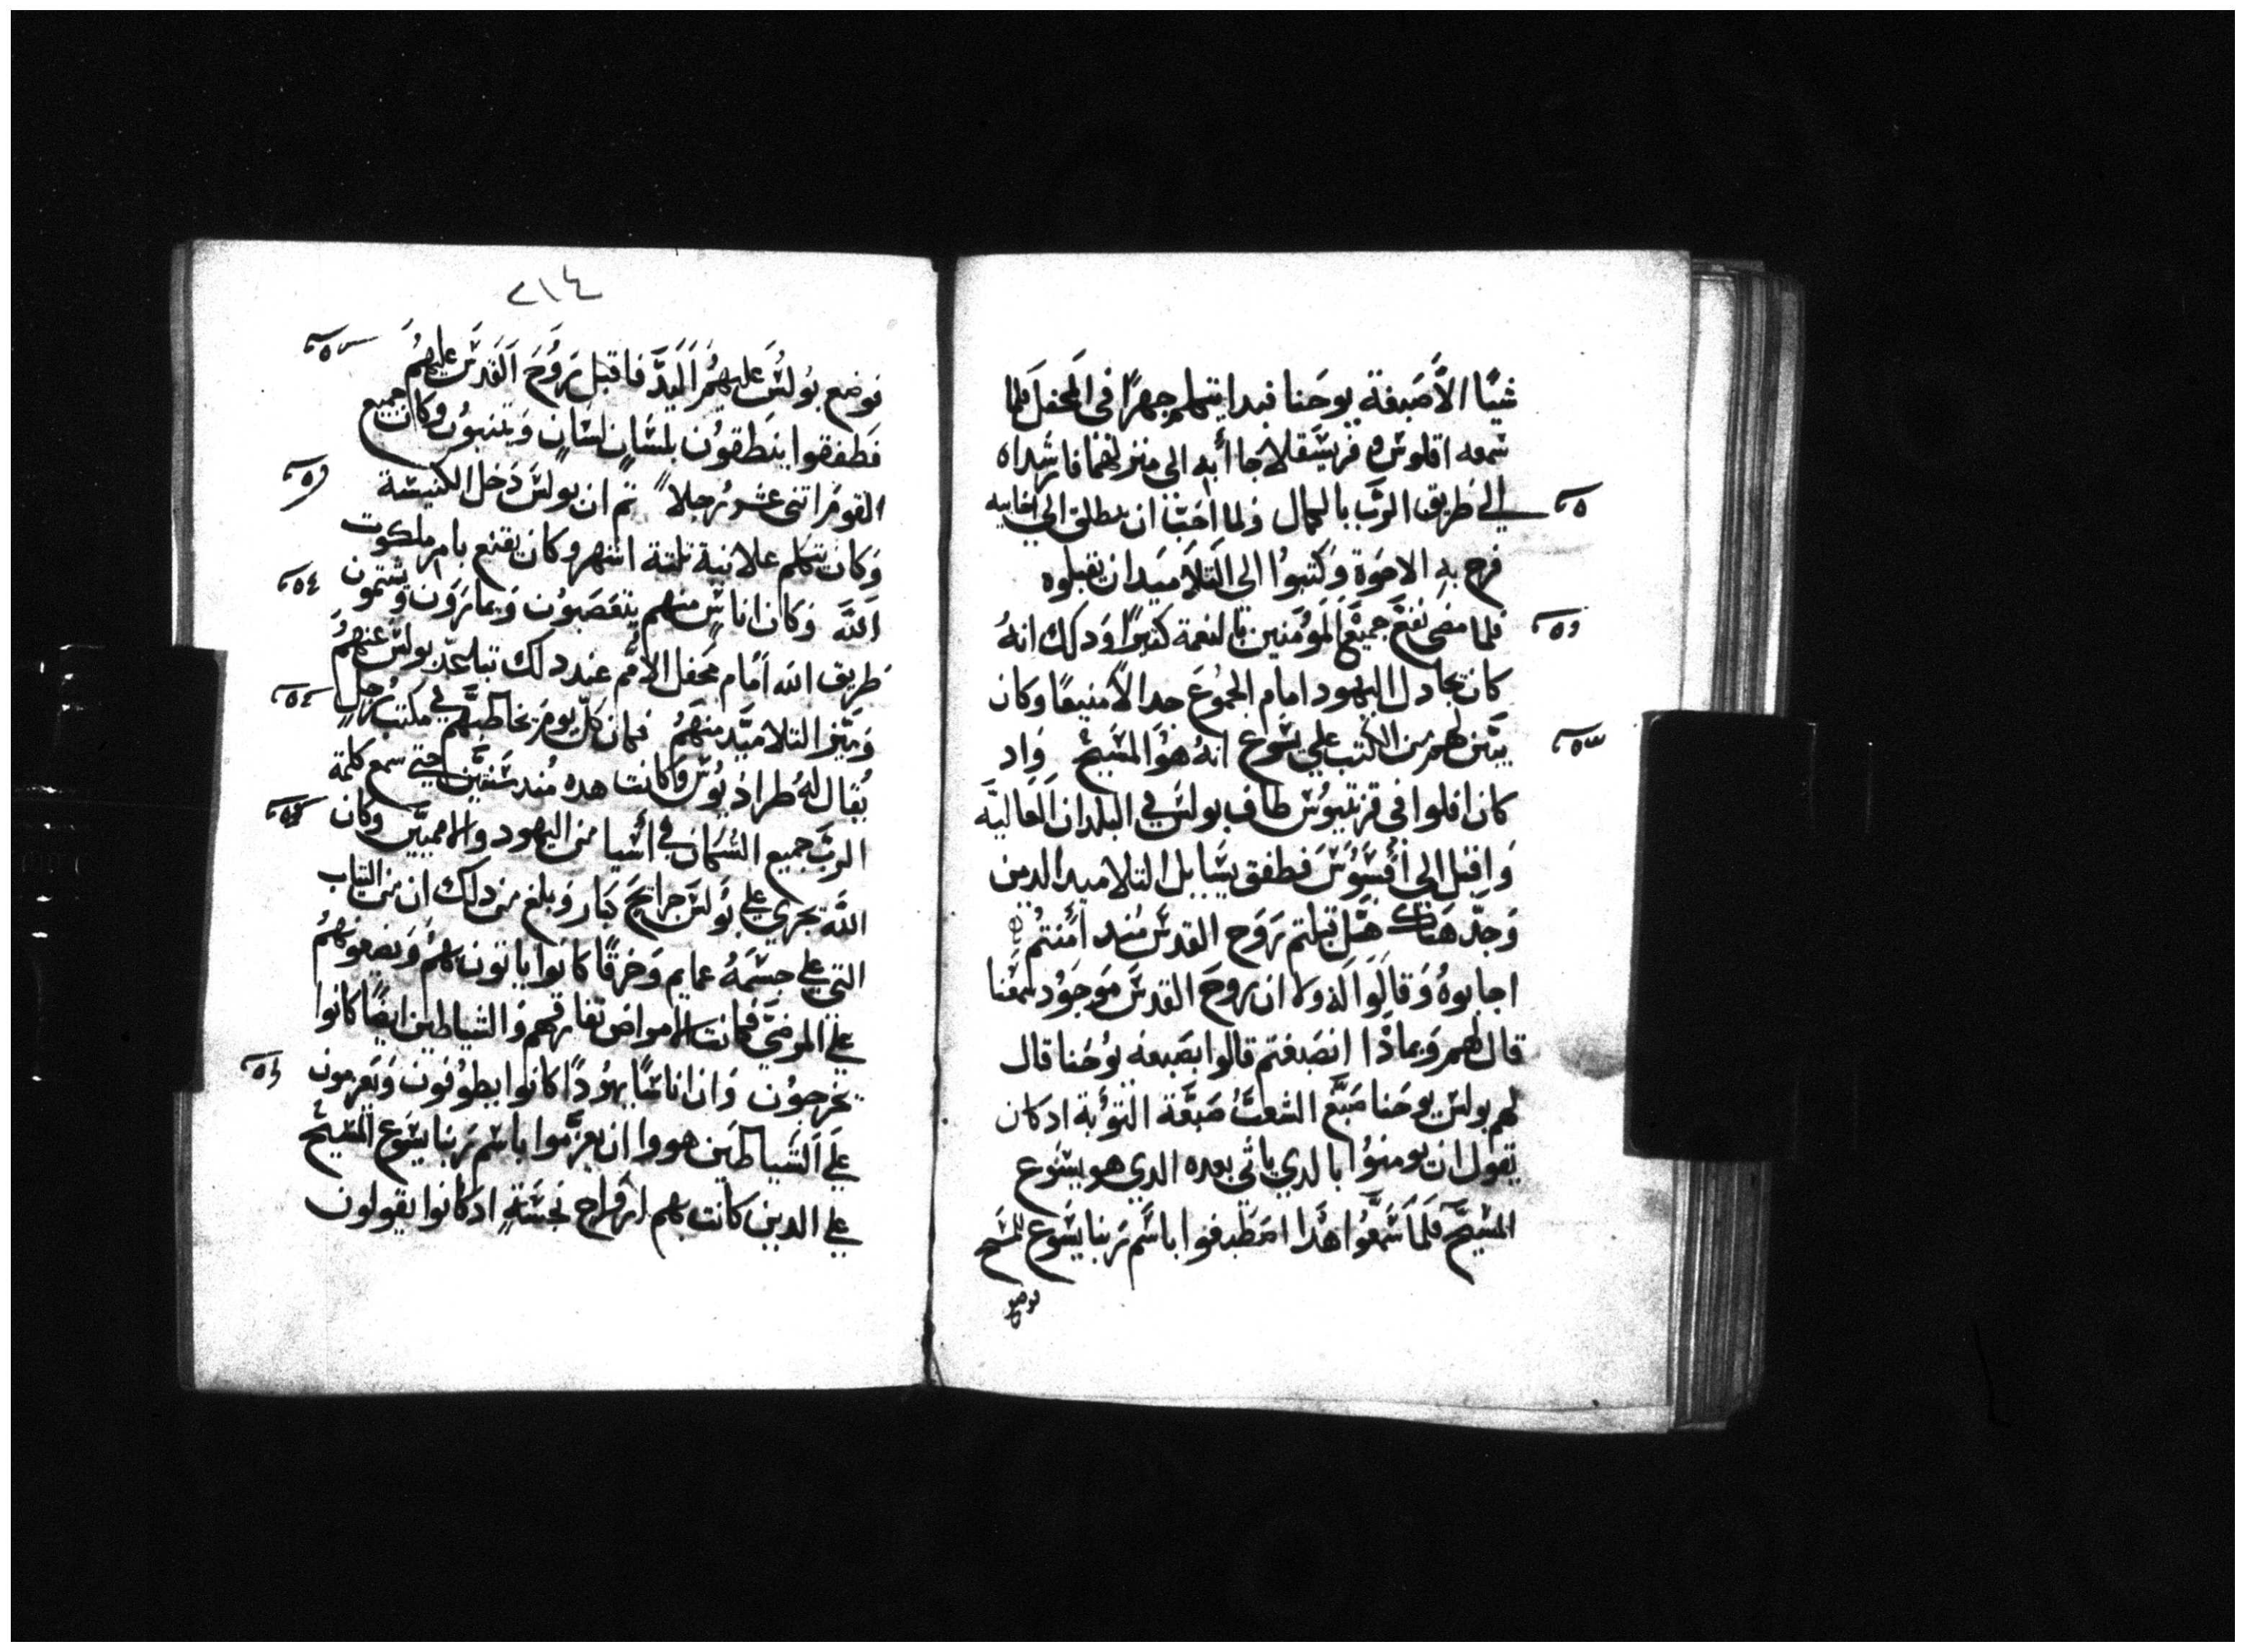 شيًا الاَّ صَبغة يوحَنا فبدا يتكلم جهرًا في المحفل فلما
سمعه اقلوس وفريسقلا جاا به الى منزلهما فارشداه
الي طريق الربّ بالكمال ولما احَبّ ان ينطلق الي اخاييه
فرح به الاخوة وَكتبوُا الى التلاَميَد ان يقبلوه
فلما مضى نفعَ جميَع الموُمَنين بالنعمة كتيرًا وَدلك انهُ
كان يجادل اليهود امام الجموُعَ جدالاً منيعًا وكان
يبَيّن لهم من الكتب علي يسَوع انهُ هوَ المسَيحُ وَاد
كان افلوا في قرنتيوُس طاف بولسَ في البلدان اَلعَاليَه
وَاقبَل الي أفسَوسَ فطفق يسَايل التلاميد الدين
وَجدّ هنَاك هَل قبلتم رَوَح القدسَ مُند اَمُنتمُ
اجابوهُ وَقالَوا لَه ولا ان روحَ القدسَ مَوجَوُد سَمعنا
قال لهم وَبمادْا انصَبغتم قالوا بصَبغه يوُحَنا قال
لهم بولسَ يوحَنا صَبَغ الشعبُ صَبَغة التوُبة اد كان
يَقول ان يومنوُا بالدي ياتي بعده الدي هو يسُوع
المسَيحَ فلمَا سَمعَوُا هَدا اصَطبغوا باسَم رَبنا يسَوع المسَيح
فوضع
٢١٤
فوَضع بوُلسَ عليهمُ اليَدّ فاقبَل رَوُحَ اَلقدسَ عليهمُ
فطفقوا ينطقوُن بلسَانٍ لسَانٍ وَيتنبوُن وكان جميع
القومَ اتنى عشر رُجلاً تم ان بولسَ دَخل الكنيسَة
وَكان يتكلم علانية تلتة اشهر وكان يقنع بامر ملكوت
الله وَكان اناسٍ منهم يتعَصَبوُن وَيمارَوَن ويشتمون
طريق الله اَمَام محفل الاُمم عند دلك تباعَد بولسَ عنهمُ
وَميّز التلاميَد منهَمُ فكان كلّ يومَ يخاطبَهُم في مكتب رَجلٍ
يُقال لهُ طرادَيوُسَ وَكانت هده مُند سَنتيَن حتي سمع كلمة
الربّ جميع السَكان في أسَيا من اليهود والامميّين وكان
الله يجرَي علي بوُلسَ جرايحَ كبَار وَبلغ من دلك ان من التياب
التي علي جسَمَهُ عمايم وَخرَقًا كانوا ياتون بهمُ وَيضعوُنهمُ
علي المرضَي فكانت الامراض تفارقهم وَالشياطين ايضًا كانوا
يخرجوُن وَان اناسًا يهوُدًا كانوا يطوُفون وَيَعزمون
علَي الشَياطيَن هووا ان يعزّموا باسَم رَبنا يسَوع المسَيحُ
علي الدين كانت بهم ارَواح نجسَةٍ اد كانوا يقولون